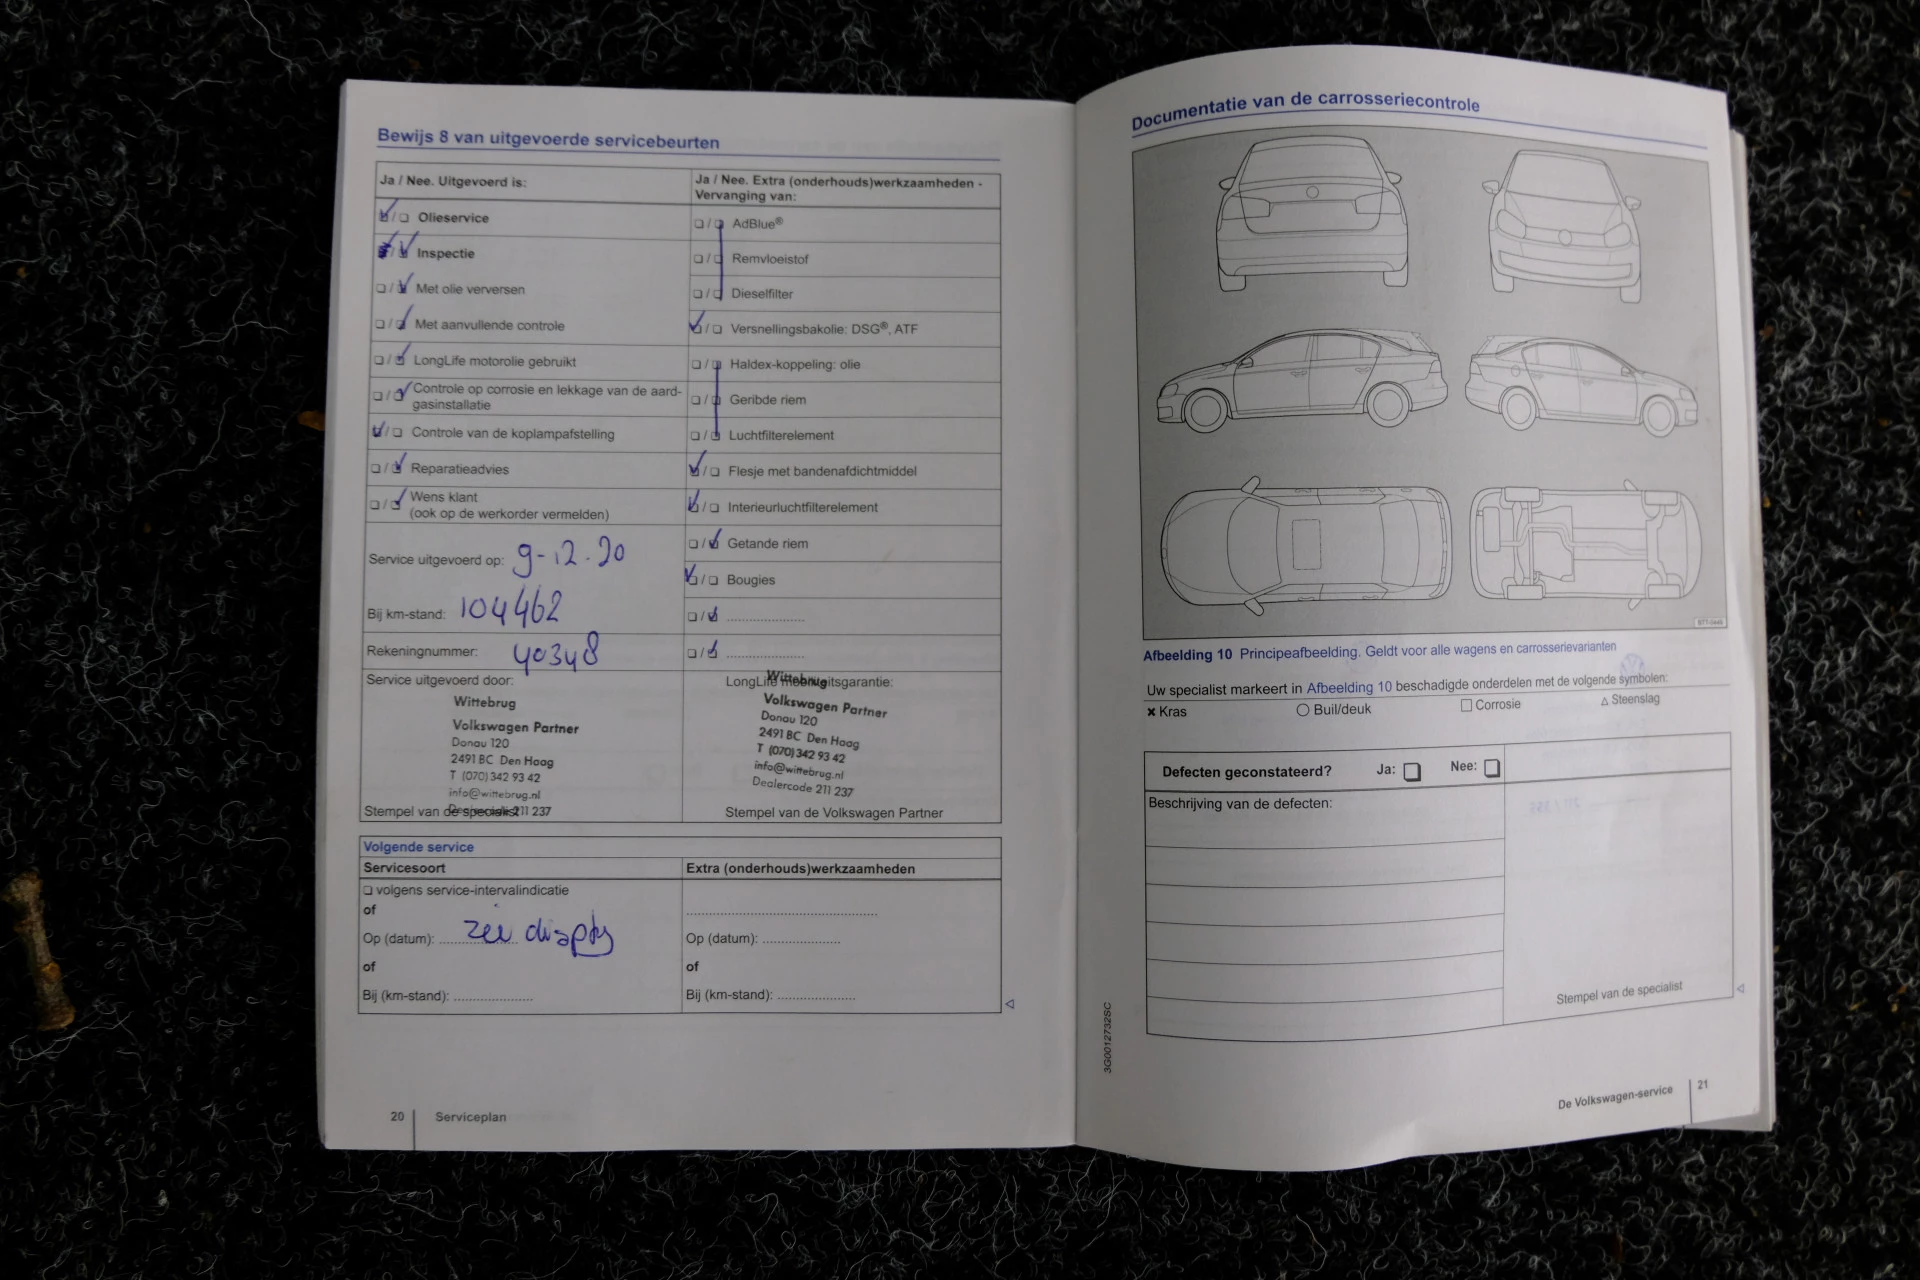 Bewijs 8 van uitgevoerde servicebeurten
Ja / Nee. Uitgevoerd is:
Olieservice
Inspectie
Met olie verversen
Met aanvullende controle
LongLife motorolie gebruikt
Controle op corrosie en lekkage van de aard-
gasinstallatie
Controle van de koplampafstelling
Reparatieadvies
Wens klant
(ook op de werkorder vermelden)
Service uitgevoerd op: 9-12-20
Bij km-stand: 104462
Rekeningnummer: 40348
Service uitgevoerd door:
Wittebrug
Volkswagen Partner
Donau 120
2491 BC Den Haag
T (070) 342 93 42
info@wittebrug.nl
Dealercode 211 237
Stempel van de specialist
Ja / Nee. Extra (onderhouds)werkzaamheden -
Vervanging van:
AdBlue®
Remvloeistof
Dieselfilter
Versnellingsbakolie: DSG®, ATF
Haldex-koppeling: olie
Geribde riem
Luchtfilterelement
Flesje met bandenafdichtmiddel
Interieurluchtfilterelement
Getande riem
Bougies
LongLife mobiliteitsgarantie:
Wittebrug
Volkswagen Partner
Donau 120
2491 BC Den Haag
T (070) 342 93 42
info@wittebrug.nl
Dealercode 211 237
Stempel van de Volkswagen Partner
Volgende service
Servicesoort
volgens service-intervalindicatie
of
Op (datum): zie display
of
Bij (km-stand):
Extra (onderhouds)werkzaamheden
Op (datum):
of
Bij (km-stand):
20 Serviceplan
Documentatie van de carrosseriecontrole
Afbeelding 10 Principeafbeelding. Geldt voor alle wagens en carrosserievarianten
Uw specialist markeert in Afbeelding 10 beschadigde onderdelen met de volgende symbolen:
Kras
Buil/deuk
Corrosie
Steenslag
Defecten geconstateerd? Ja: Nee:
Beschrijving van de defecten:
Stempel van de specialist
3G0012732SC
De Volkswagen-service 21